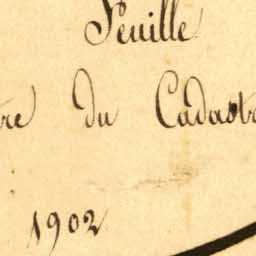 Feuille
tre du Cadastr
1902